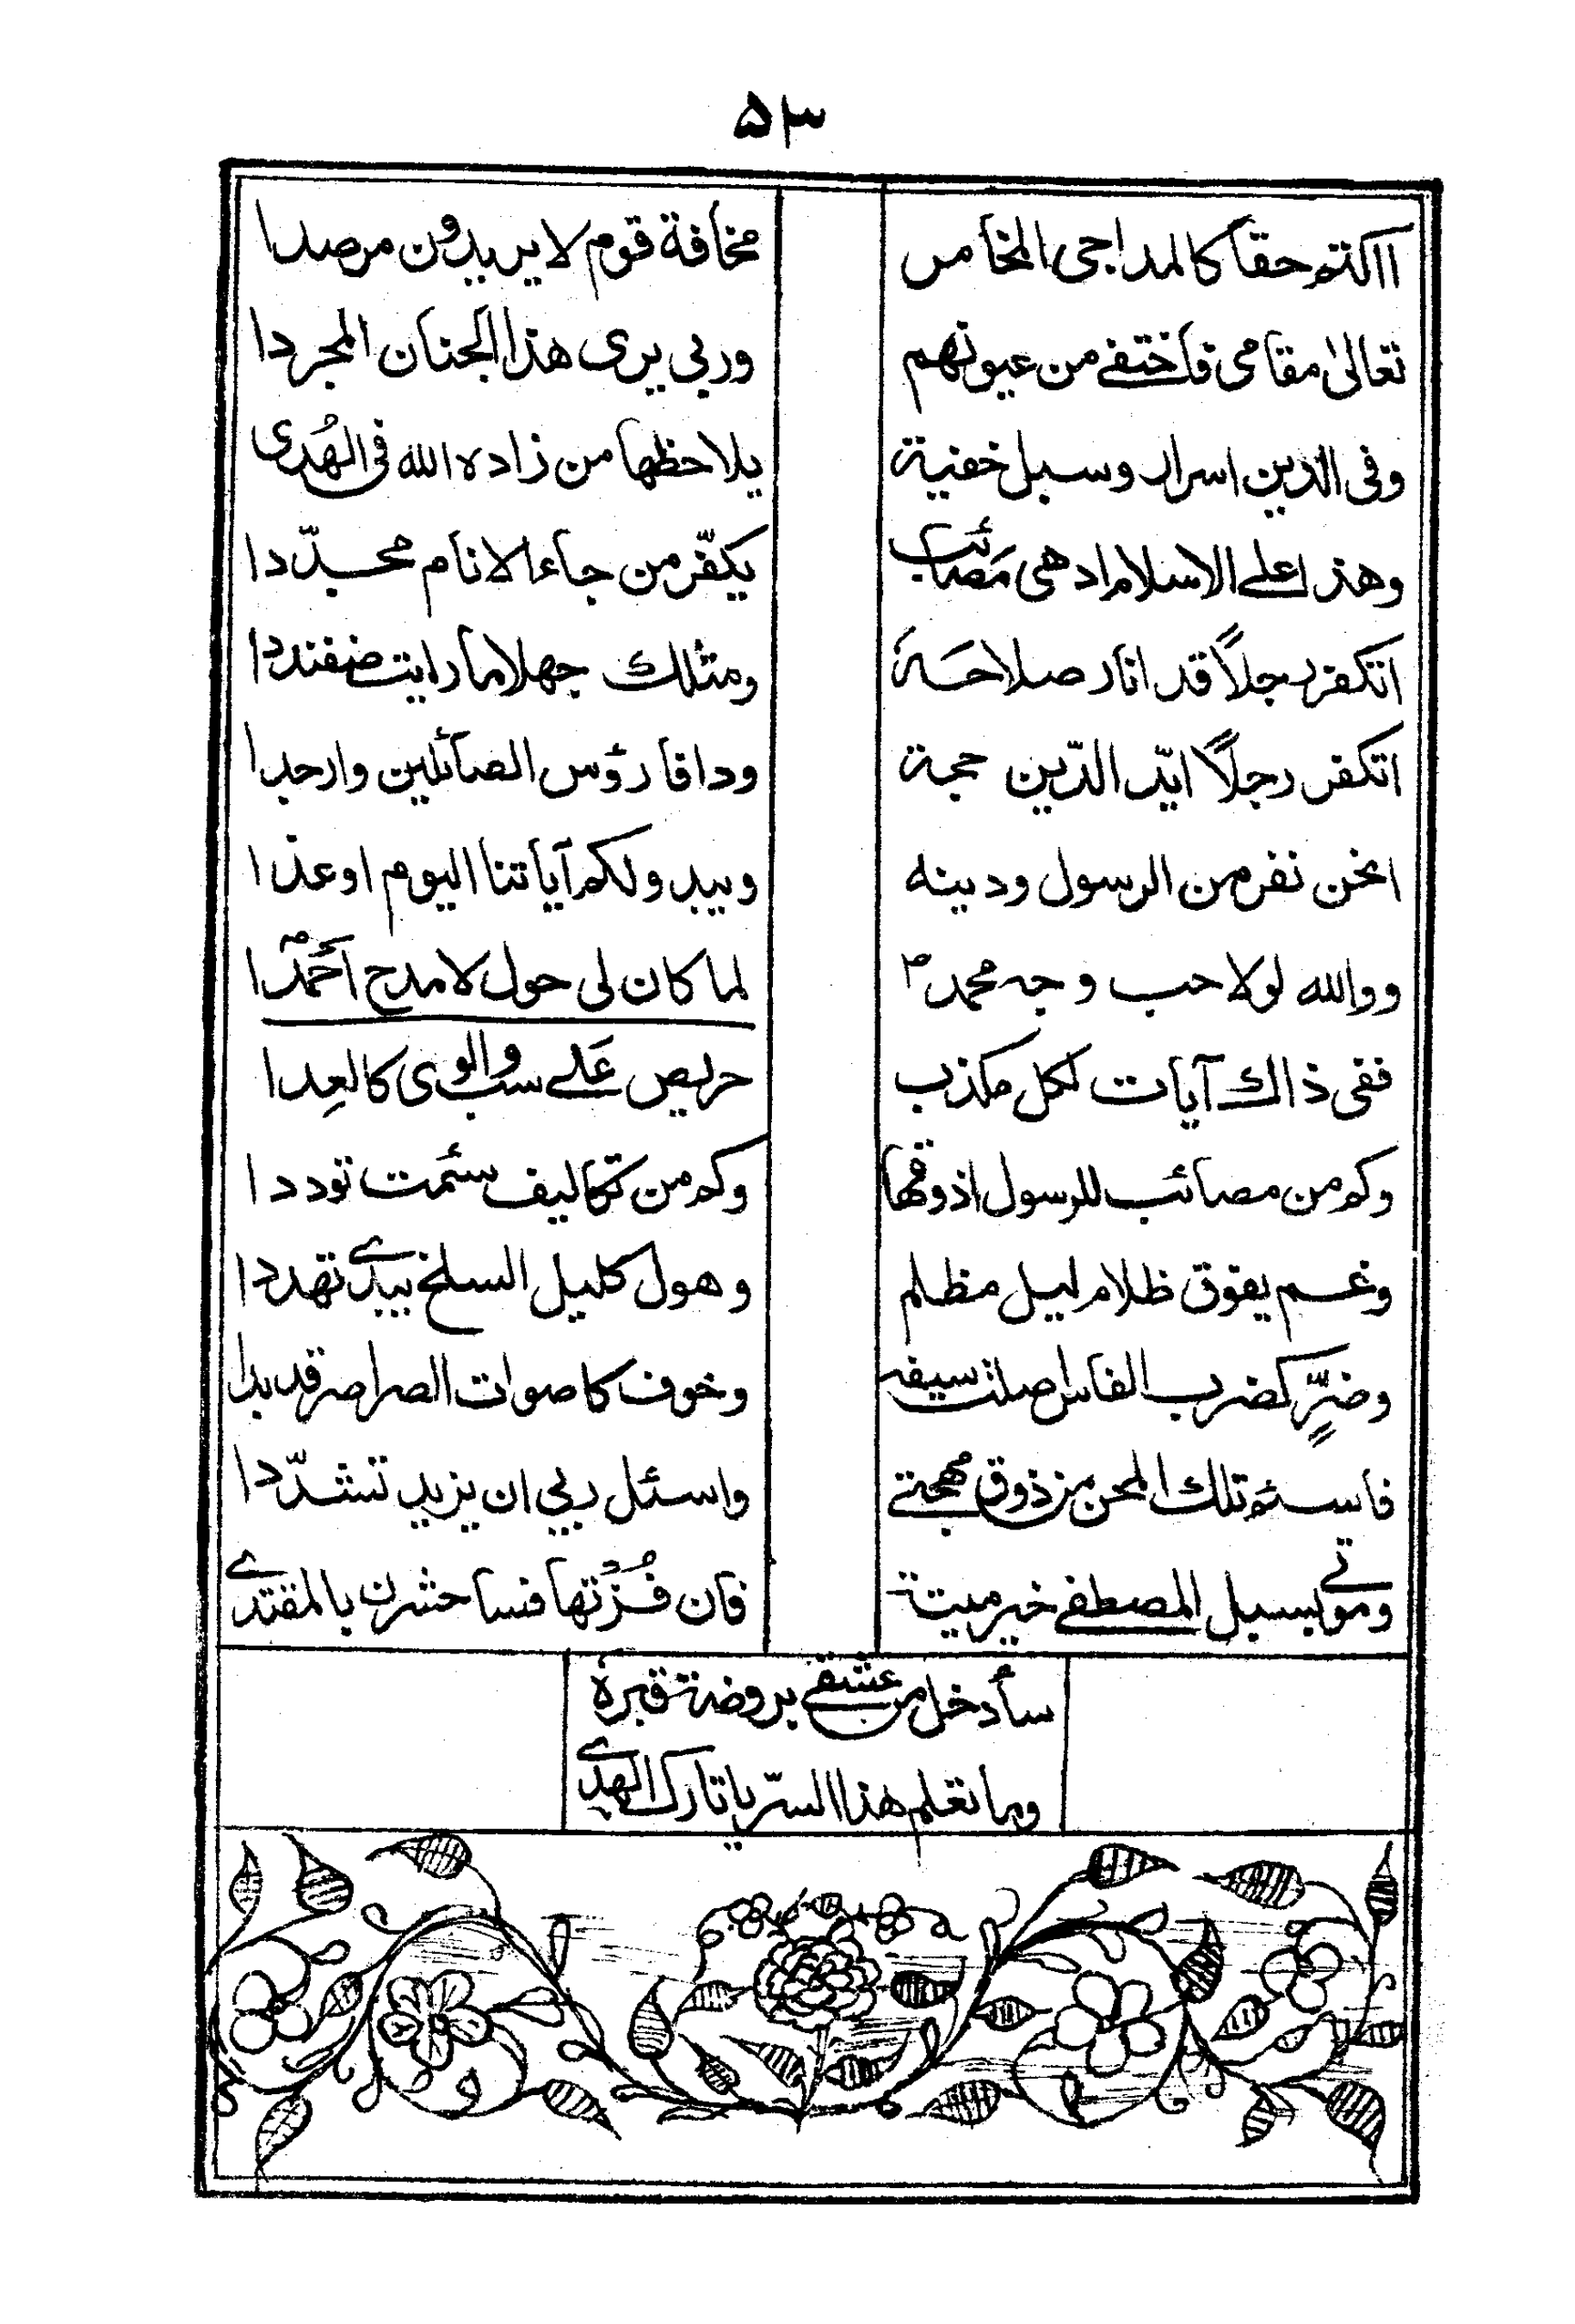 ۵۳
ااکتم حقا کالمداجی المخامر مخافة قوم لا یریدون مرصدا
تعالیٰ مقامی فاختفی من عیونهم وربی یری هذا الجنان المجردا
وفی الدین اسرار وسبل خفیة یلاحظها من زاده الله فی الهُدی
وهذا علی الاسلام ادهی مَصائب یکفّر من جاء الانام محدّدا
اتکفر رجلاً قد انار صلاحَهٗ ومثلك جهلا ما رایت ضفنددا
اتکفر رجلاً ایّد الدّین حجة ودافا رؤس الصائلین وارجدا
انحن نفر من الرسول ودینه ویبدو لکم آیاتنا الیوم اوغدا
ووالله لولا حب وجه محمد ؐ لما کان لی حول لامدح اَحْمَدَاؐ
ففی ذالك آیات لکل مکذب حریص عَلی سب والوی کالعِدا
وکم من مصائب للرسول اذوقها وکم من تکالیف سئمت توددا
وغم یفوق ظلام لیل مظلم وهول کلیل السلخ یبدی تهددا
وضرٍّ کضرب الفاس اصلت سیفه وخوف کاصوات الصراصر قد بدا
فاسئم تلك المحن من ذوق مهجتی واسئل ربی ان یزید تشدّدا
وموتی بسبل المصطفی خیر میتة فان فُزْتُها فساحشرن بالمقتدی
سأدخل من عشقی بروضة قبرهٖ
وما تعلم هذا السرّ یا تارك الهدی